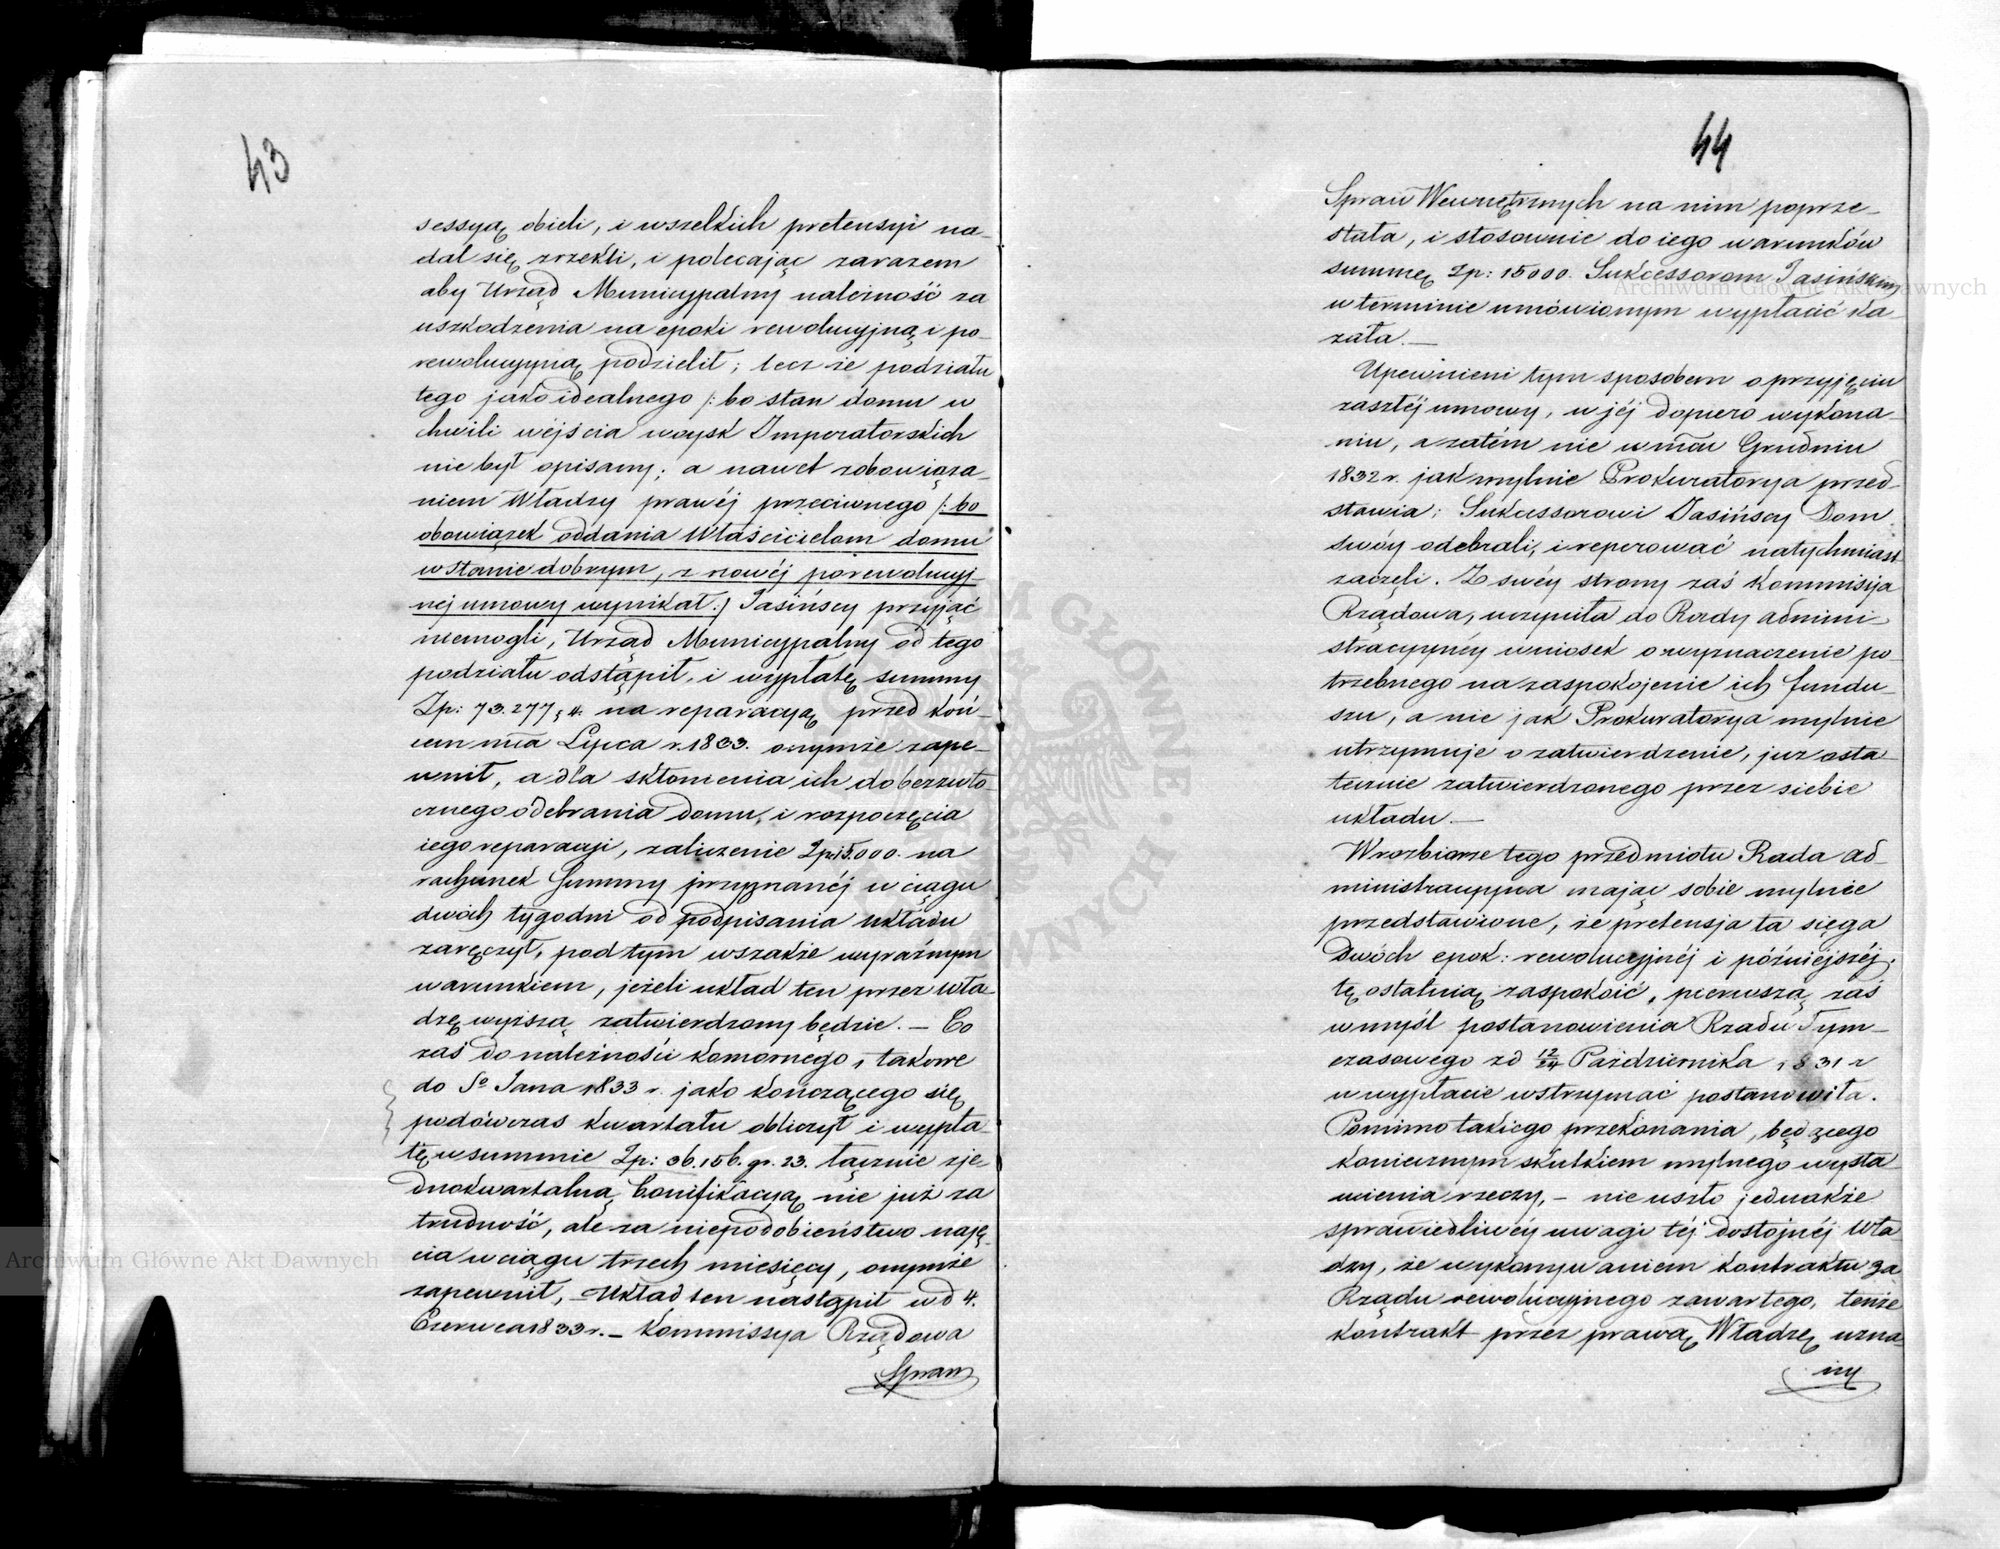 43
sessyą obieli, i wszelkich pretensyi na-
dal się zrzekli, i polecając zarazem
aby Urząd Municypalny należność za
uszkodzenia na epoki rewolucyjną i po-
rewolucyjną podzielił; lecz że podziału
tego jako idealnego /: bo stan domu w
chwili wejścia woysk Imperatorskich
nie był opisany; a nawet zobowiąza-
niem Władzy prawéj przeciwnego /: bo
obowiązek oddania Właścicielom domu
w stanie dobrym, z nowéj porewolucyj-
néj umowy wynikał :/ Jasińscy przyjąć
niemogli, Urząd Municypalny od tego
podziału odstąpił, i wypłatę summy
Zp: 73.277, 4. na reparacyą przed koń-
cem mca Lipca r. 1833. onymże zape-
wnił, a dla skłonienia ich do bezzwło-
cznego odebrania domu, i rozpoczęcia
iego reparacyi, zaliczenie Zp: 15.000. na
rachunek Summy przyznanéj w ciągu
dwóch tygodni od podpisania układu
zaręczył, pod tym wszakże wyraźnym
warunkiem, jeżeli układ ten przez Wła-
dzę wyższą zatwierdzony będzie. — Co
zaś do należności komornego, takowe
do So Jana 1833 r. jako kończącego się
podówczas kwartału obliczył i wypła-
tę w summie Zp: 36.156. gr. 23. łącznie zje-
dnokwartalną bonifikacyą nie już za
trudność, ale za niepodobieństwo naję-
cia w ciągu trzech miesięcy, onymże
zapewnił, — Układ ten nastąpił w d 4.
Czerwca 1833 r. — Kommissya Rządowa
Spraw
44
Spraw Wewnętrznych na nim poprze-
stała, i stosownie do iego warunków
summę Zp: 15000. Sukcessorom Jasińskim
w terminie umówionym wypłacić ka-
zała. —
Upewnieni tym sposobem o przyjęciu
zaszłéj umowy, w jéj dopiero wykona-
niu, a zatém nie w mcu Grudniu
1832 r. jak mylnie Prokuratorya przed-
stawia; Sukcessorowi Jasińscy Dom
swóy odebrali, i reperować natychmiast
zaczęli. Z swéy strony zaś Kommissja
Rządowa, uczyniła do Rady admini-
stracyynéy wniosek o wyznaczenie po-
trzebnego na zaspokojenie ich fundu-
szu, a nie jak Prokuratorya mylnie
utrzymuje o zatwierdzenie, już osta-
tecznie zatwierdzonego przez siebie
układu. —
W rozbiorze tego przedmiotu Rada ad-
ministracyyna mając sobie mylnie
przedstawione, że pretensja ta sięga
Dwóch epok: rewolucyjnéj i późniéjszéj;
tę ostatnią zaspokoić, pierwszą zaś
w myśl postanowienia Rządu Tym-
czasowego zd 12/24 Października 1831 r
w wypłacie wstrzymać postanowiła.
Pomimo takiego przekonania, będącego
koniecznym skutkiem mylnego wysta-
wienia rzeczy, — nie uszło jednakże
sprawiedliwéy uwagi téj dostojnéj Wła-
dzy, że wykonywaniem kontraktu za
Rządu rewolucyjnego zawartego, tenże
kontrakt przez prawą Władzę uzna-
ny
Archiwum Główne Akt Dawnych
Archiwum Główne Akt Dawnych